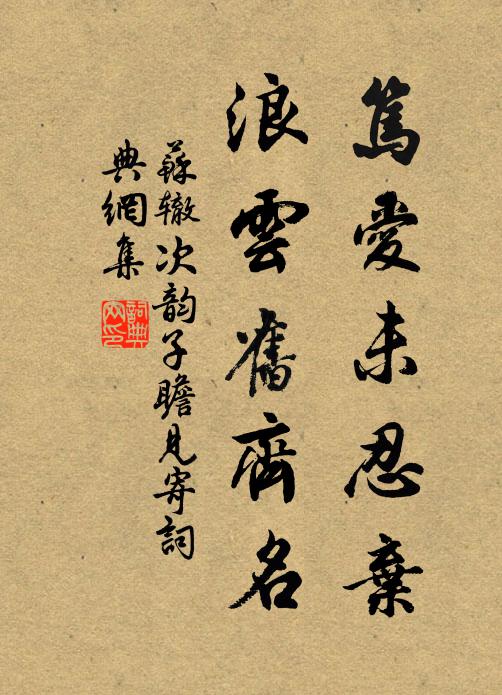 篤愛未忍棄
浪雲舊齊名
蘇轍次韵子瞻見寄詞
典網集
詞典
网印